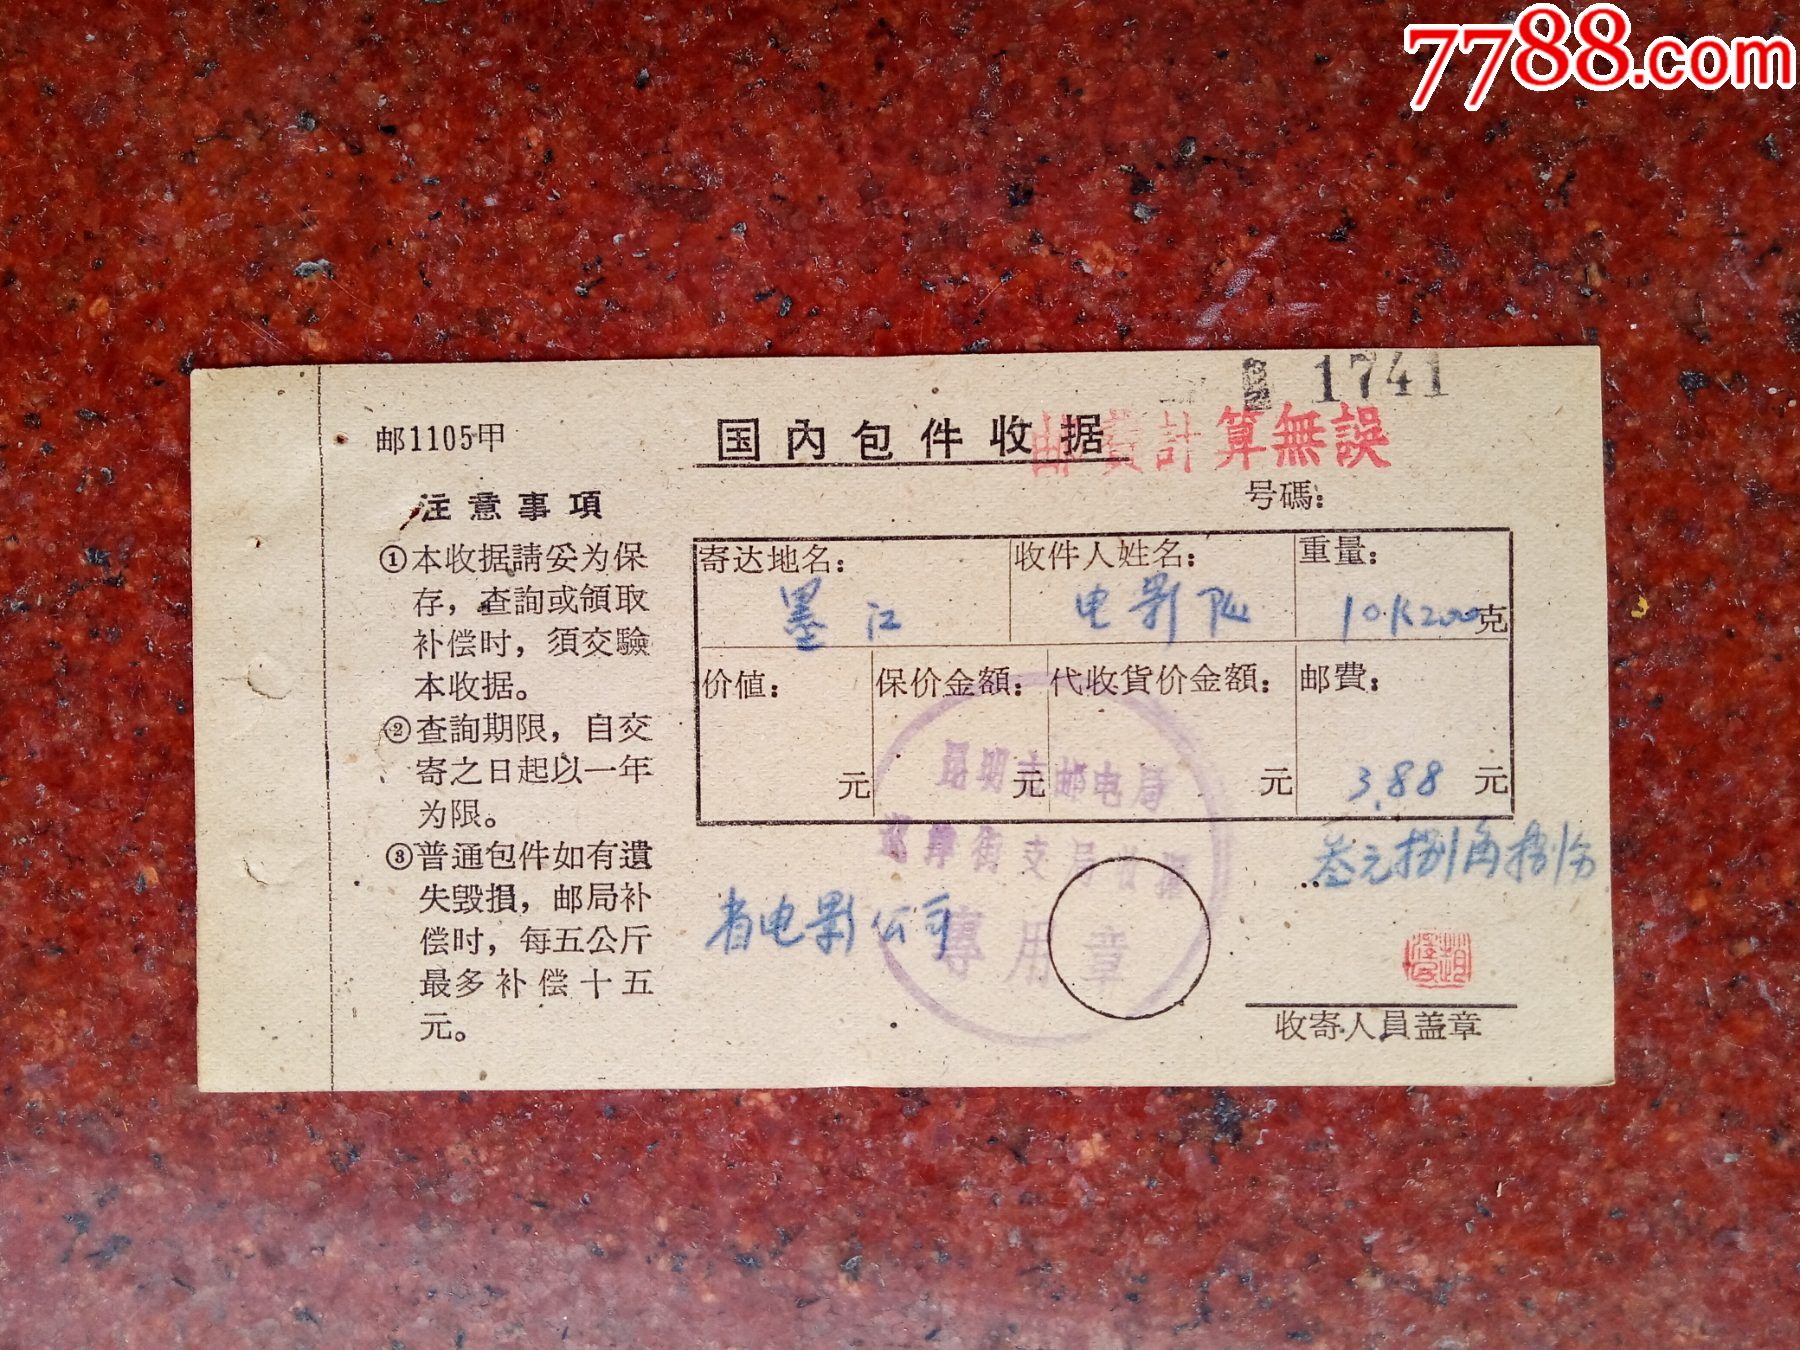 7788.com
1741
邮1105甲
国内包件收据
邮費計算無誤
号碼:
注意事項
①本收据請妥为保
存,查詢或領取
补偿时,須交驗
本收据。
②查詢期限,自交
寄之日起以一年
为限。
③普通包件如有遺
失毁損,邮局补
偿时,每五公斤
最多补偿十五
元。
寄达地名: 收件人姓名: 重量:
墨江 电影队 10K200克
价值: 保价金額: 代收貨价金額: 邮費:
元 元 元 3.88 元
叁元捌角捌分
昆明市邮电局
街支局收据
專用章
省电影公司
收寄人員盖章